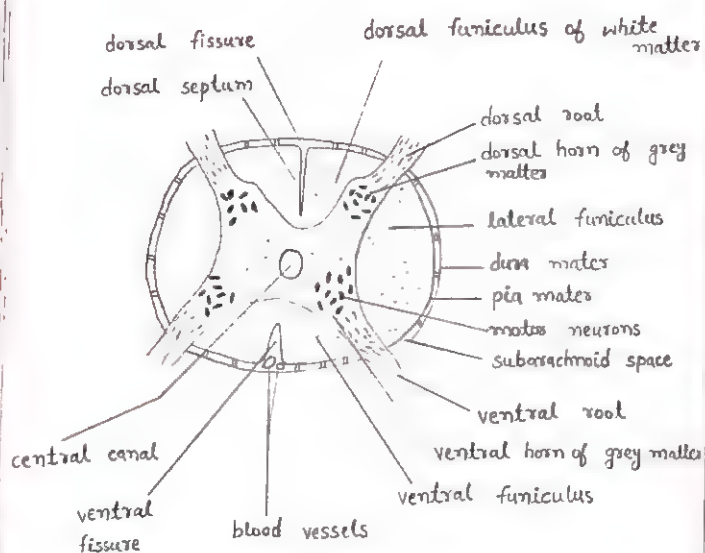 dorsal fissure
dorsal funiculus of white
matter
dorsal septum
dorsal root
dorsal horn of grey
matter
lateral funiculus
dura mater
pia mater
motor neurons
subarachnoid space
ventral root
central canal
ventral horn of grey matter
ventral funiculus
ventral
fissure
blood vessels